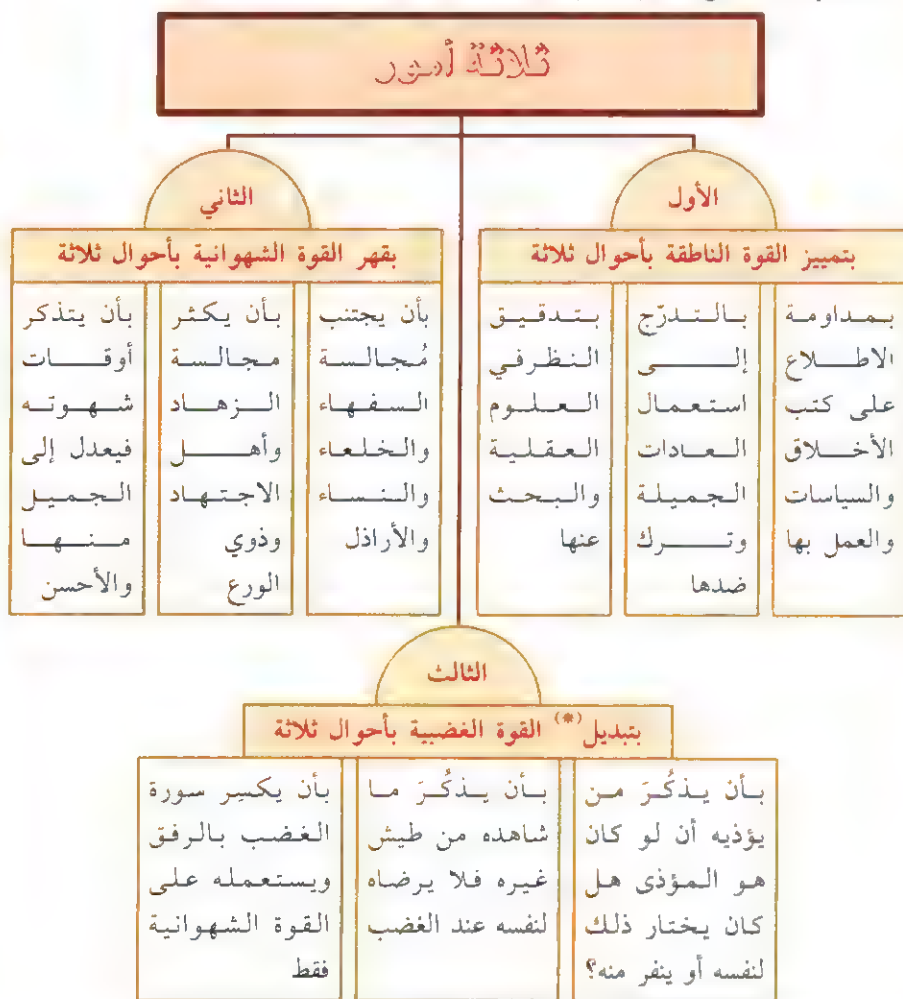 ثلاثة أمور
الأول
بتمييز القوة الناطقة بأحوال ثلاثة
بمداومة
الاطلاع
على كتب
الأخلاق
والسياسات
والعمل بها
بالتدرّج
إلى
استعمال
العادات
الجميلة
وترك
ضدها
بتدقيق
النظر في
العلوم
العقلية
والبحث
عنها
الثاني
بقهر القوة الشهوانية بأحوال ثلاثة
بأن يجتنب
مُجالسة
السفهاء
والخلعاء
والنساء
والأراذل
بأن يكثر
مجالسة
الزهاد
وأهل
الاجتهاد
وذوي
الورع
بأن يتذكر
أوقات
شهوته
فيعدل إلى
الجميل
منها
والأحسن
الثالث
بتبديل(*) القوة الغضبية بأحوال ثلاثة
بأن يذكُرَ من
يؤذيه أن لو كان
هو المؤذى هل
كان يختار ذلك
لنفسه أو ينفر منه؟
بأن يذكُرَ ما
شاهده من طيش
غيره فلا يرضاه
لنفسه عند الغضب
بأن يكسِر سورة
الغضب بالرفق
ويستعمله على
القوة الشهوانية
فقط